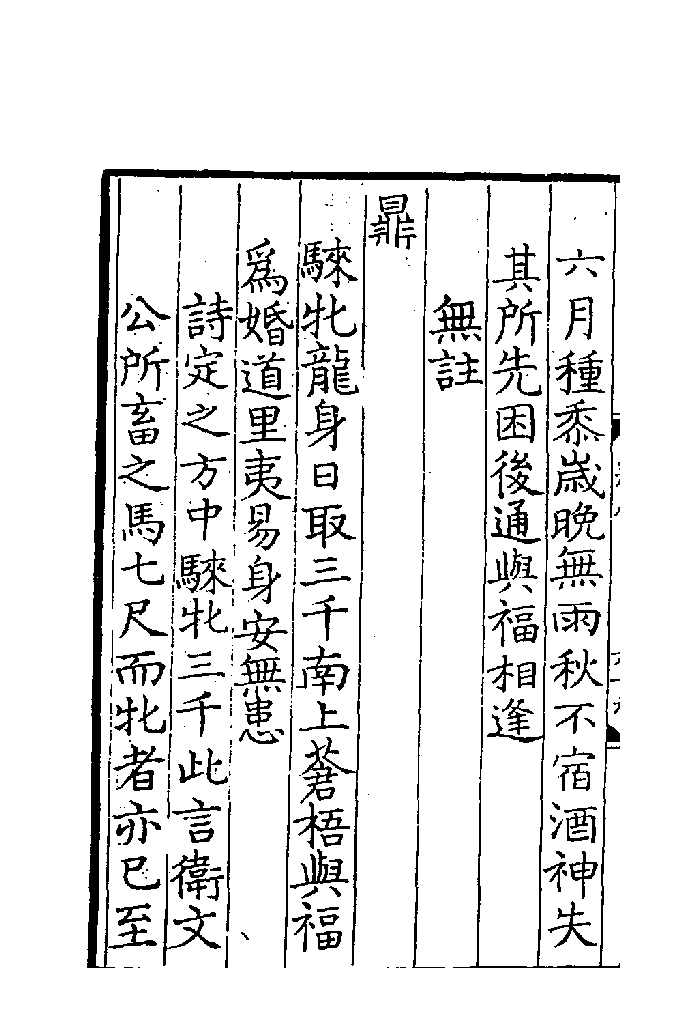 六月種黍歳晩無雨秋不宿酒神失
其所先困後通與福相逢
無註
鼎
騋牝龍身日取三千南上蒼梧與福
爲婚道里夷易身安無患
詩定之方中騋牝三千此言衛文
公所畜之馬七尺而牝者亦已至